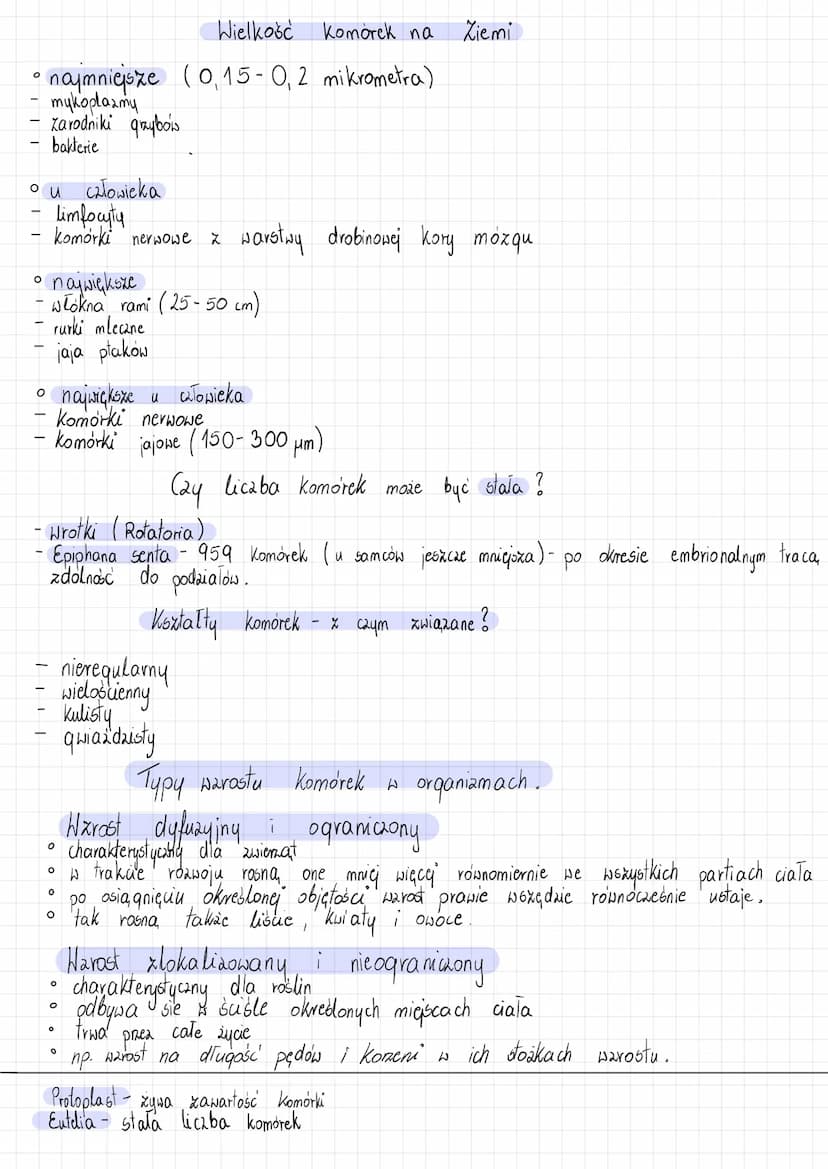 Wielkość komórek na Ziemi
° najmniejsze (0,15-0,2 mikrometra)
- mykoplazmy
- zarodniki grzybów
- bakterie
° u człowieka
- limfocyty
- komórki nerwowe z warstwy drobinowej kory mózgu
° największe
- włókna rami (25-50 cm)
- rurki mleczne
- jaja ptaków
° największe u człowieka
- komórki nerwowe
- komórki jajowe (150-300 μm)
Czy liczba komórek może być stała?
- wrotki (Rotatoria)
- Epiphana senta - 959 komórek (u samców jeszcze mniejsza) - po okresie embrionalnym tracą
zdolność do podziałów.
Kształty komórek - z czym związane?
- nieregularny
- wielościenny
- kulisty
- gwiaździsty
Typy wzrostu komórek w organizmach.
Wzrost dyfuzyjny i ograniczony
° charakterystyczny dla zwierząt
° w trakcie rozwoju rosną one mniej więcej równomiernie we wszystkich partiach ciała
° po osiągnięciu określonej objętości wzrost prawie wszędzie równocześnie ustaje.
° tak rosną także liście, kwiaty i owoce.
Wzrost zlokalizowany i nieograniczony
° charakterystyczny dla roślin
° odbywa się w ściśle określonych miejscach ciała
° trwa przez całe życie
° np. wzrost na długość pędów i korzeni w ich stożkach wzrostu.
Protoplast - żywa zawartość komórki
Eutelia - stała liczba komórek